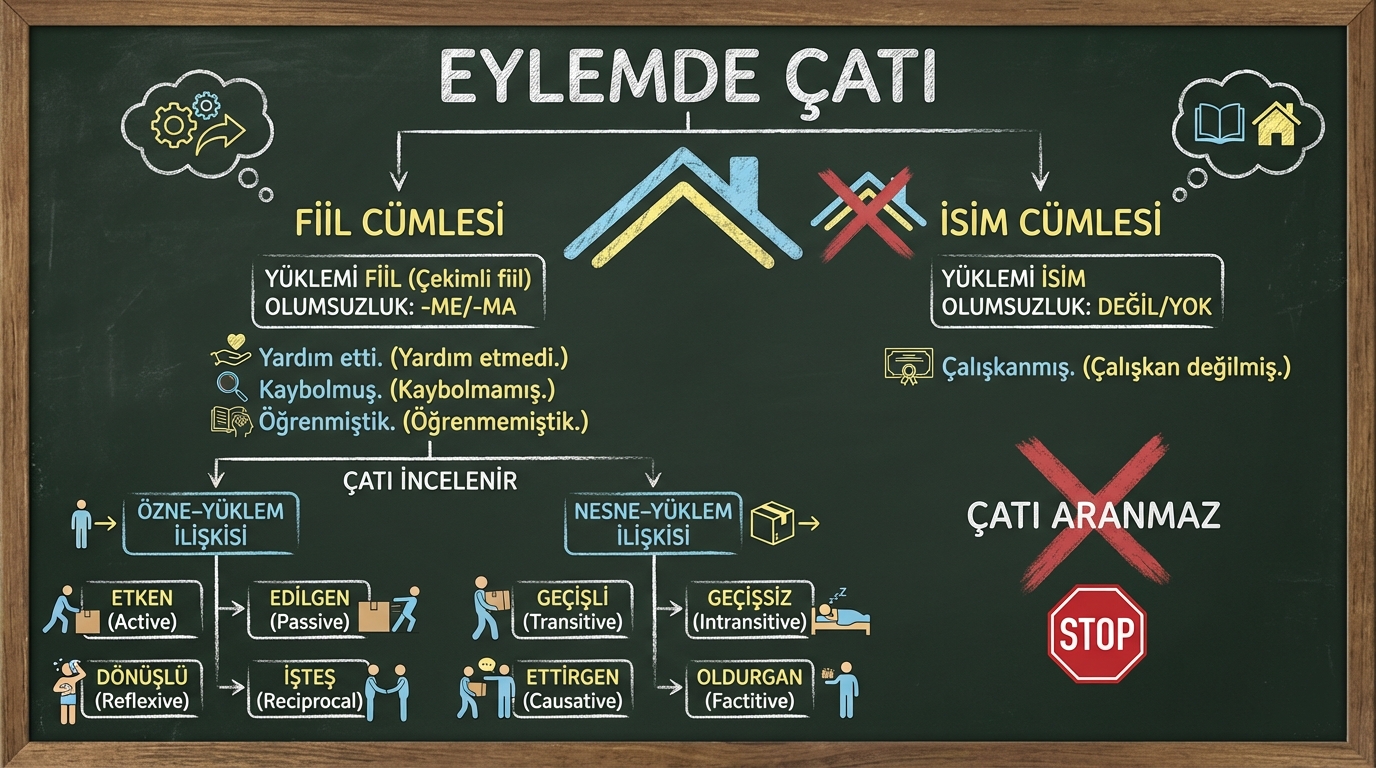 EYLEMDE ÇATI
FİİL CÜMLESİ
YÜKLEMİ FİİL (Çekimli fiil)
OLUMSUZLUK: -ME/-MA
Yardım etti. (Yardım etmedi.)
Kaybolmuş. (Kaybolmamış.)
Öğrenmiştik. (Öğrenmemiştik.)
ÇATI İNCELENİR
ÖZNE–YÜKLEM
İLİŞKİSİ
ETKEN
(Active)
EDİLGEN
(Passive)
DÖNÜŞLÜ
(Reflexive)
İŞTEŞ
(Reciprocal)
NESNE–YÜKLEM
İLİŞKİSİ
GEÇİŞLİ
(Transitive)
GEÇİŞSİZ
(Intransitive)
zZZ
ETTİRGEN
(Causative)
OLDURGAN
(Factitive)
İSİM CÜMLESİ
YÜKLEMİ İSİM
OLUMSUZLUK: DEĞİL/YOK
Çalışkanmış. (Çalışkan değilmiş.)
ÇATI ARANMAZ
STOP